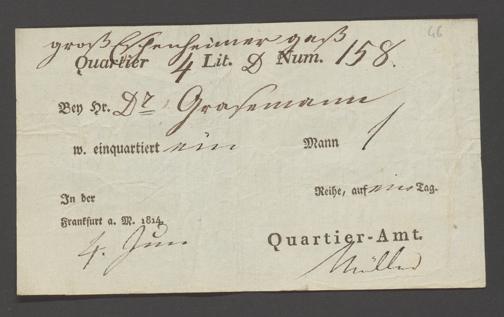 groß Eschenheimer gaß
46
Quartier 4 Lit. D Num. 158.
Bey Hr. Dr Grasemann
w. einquartiert ein Mann 1
Reihe, auf ein Tag.
In der
Frankfurt a. M. 1814.
4. Jun
Quartier-Amt.
Müller